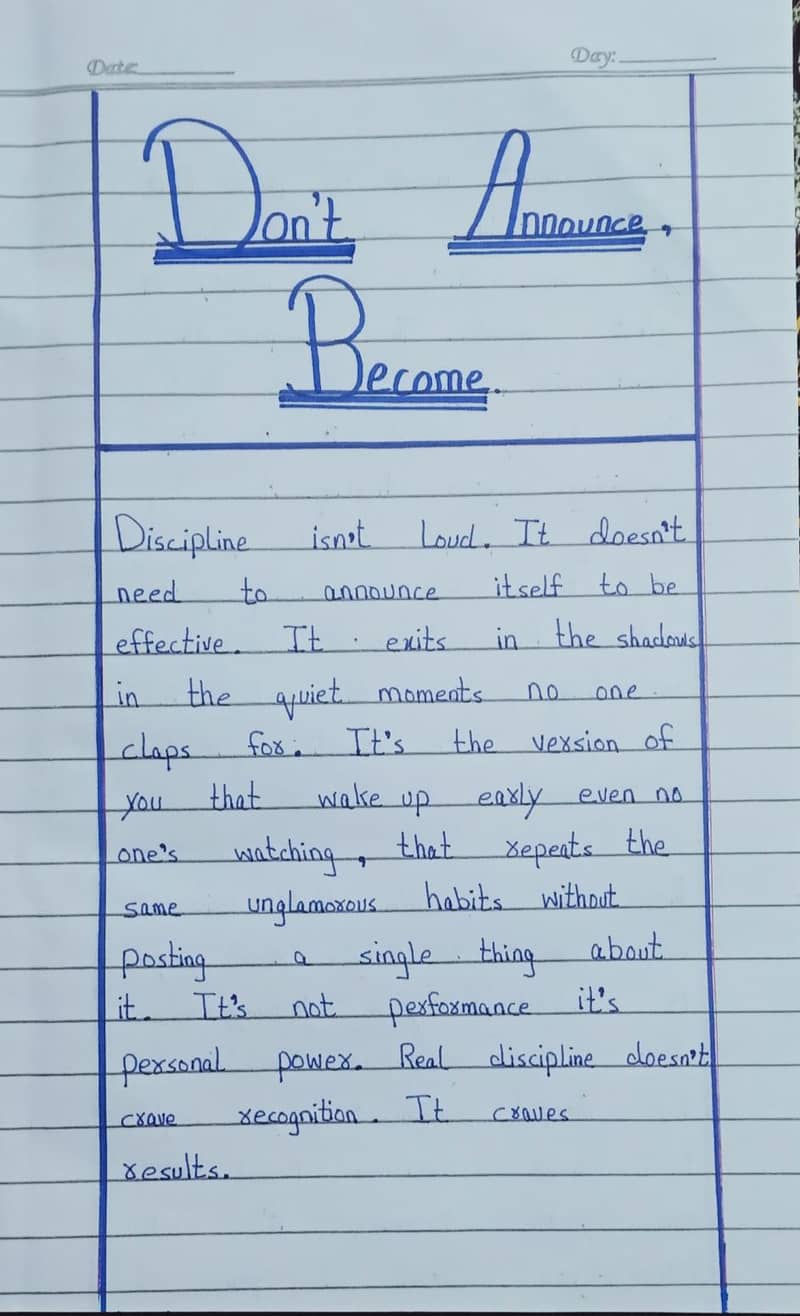 Date
Day:
Don't Announce,
Become.
Discipline isn't Loud. It doesn't
need to announce itself to be
effective. It exits in the shadows
in the quiet moments no one
claps for. It's the version of
you that wake up early even no
one's watching, that repeats the
same unglamorous habits without
posting a single thing about
it. It's not performance it's
personal power. Real discipline doesn't
crave recognition. It craves
results.